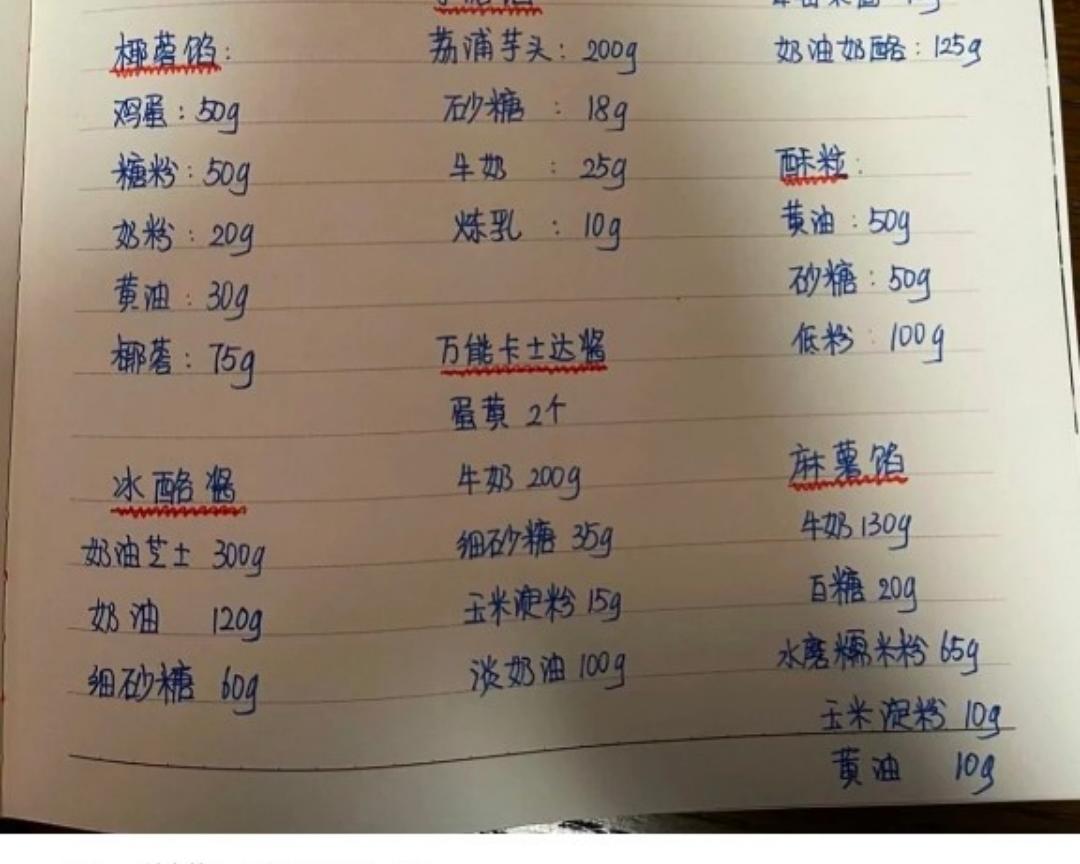 椰蓉馅:
鸡蛋:50g
糖粉:50g
奶粉:20g
黄油:30g
椰蓉:75g
冰酪酱
奶油芝士 300g
奶油 120g
细砂糖 60g
荔浦芋头:200g
砂糖:18g
牛奶:25g
炼乳:10g
万能卡士达酱
蛋黄 2个
牛奶 200g
细砂糖 35g
玉米淀粉 15g
淡奶油 100g
奶油奶酪:125g
酥粒:
黄油:50g
砂糖:50g
低粉:100g
麻薯馅
牛奶 130g
白糖 20g
水磨糯米粉 65g
玉米淀粉 10g
黄油 10g